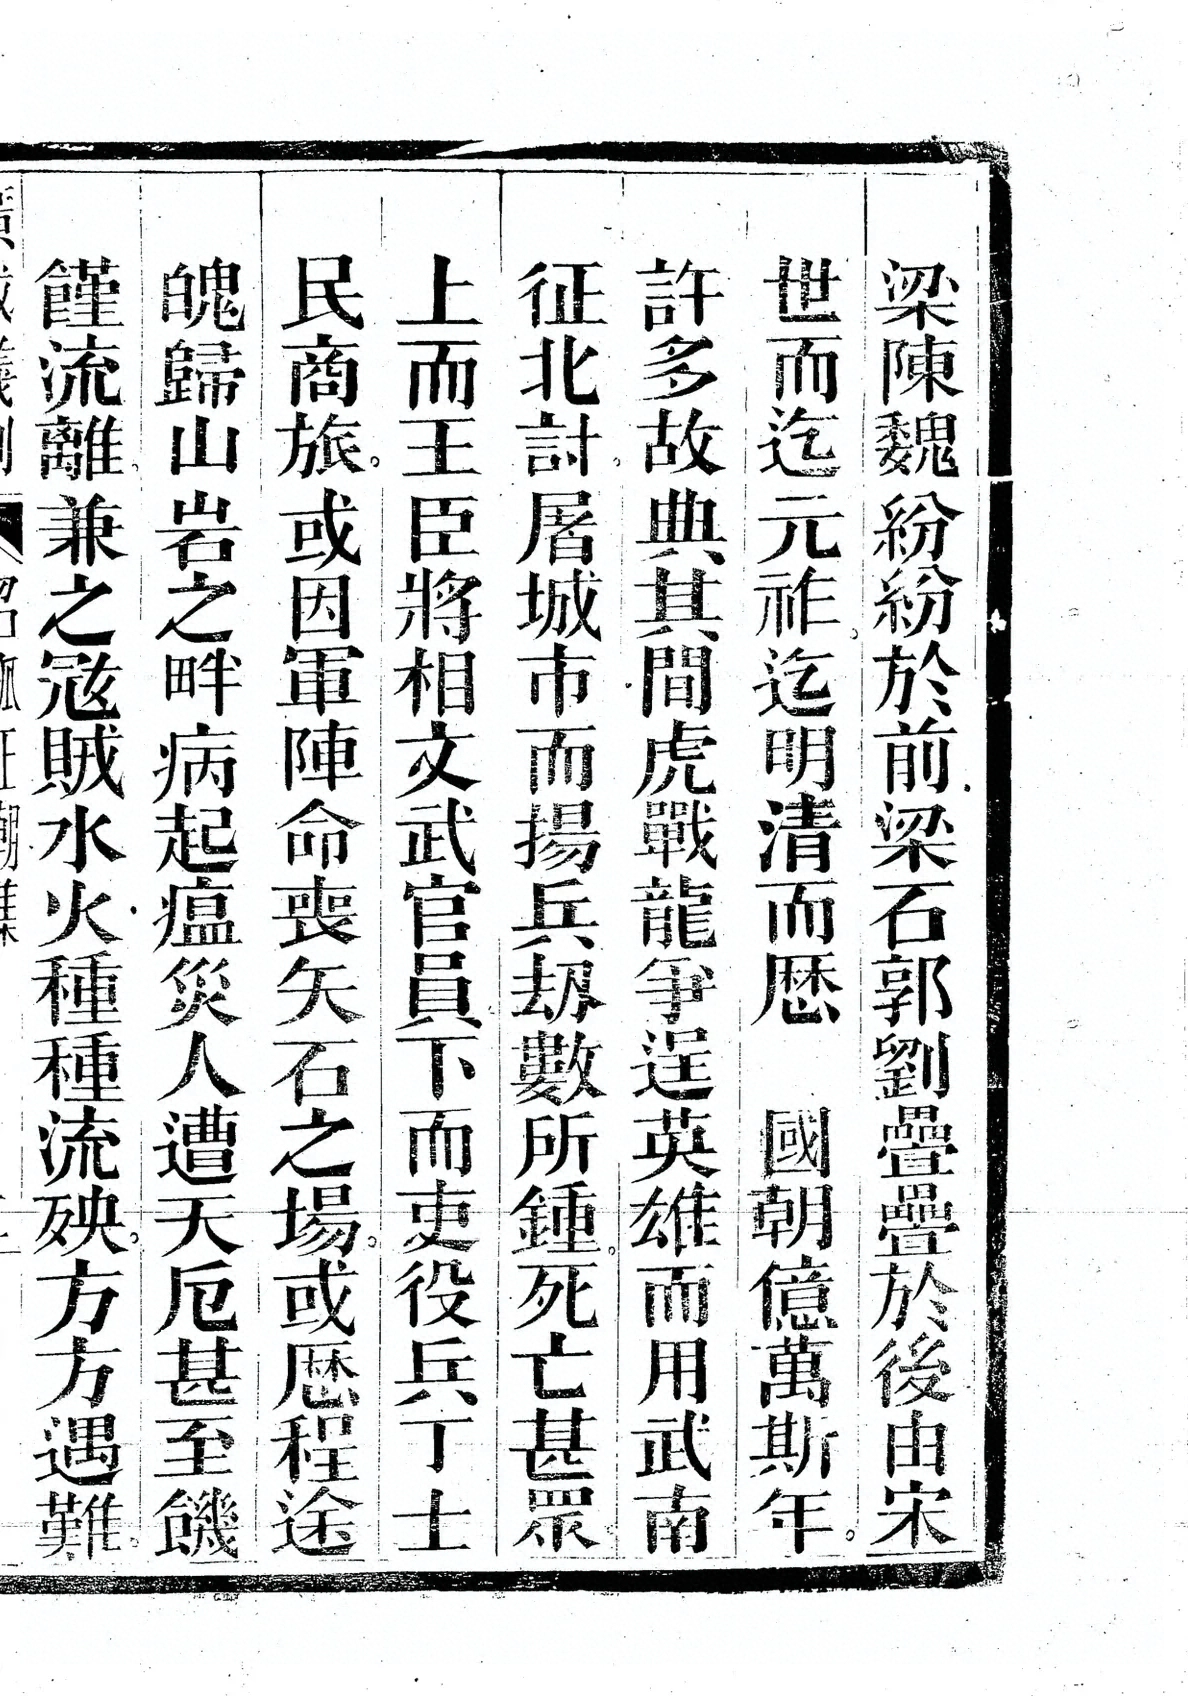 梁陳魏紛紛於前梁石郭劉疊疊於後由宋
世而迄元祚。迄明清而厯　國朝億萬斯年。
許多故典其間虎戰龍爭逞英雄而用武南
征北討。屠城市而揚兵劫數所鍾。死亡甚眾。
上而王臣將相文武官員下而吏役兵丁士
民商旅。或因軍陣命喪矢石之場。或厯程途
魄歸山岩之畔病起瘟災人遭天厄甚至饑
饉流離。兼之寇賊水火種種流殃。方方遇難。